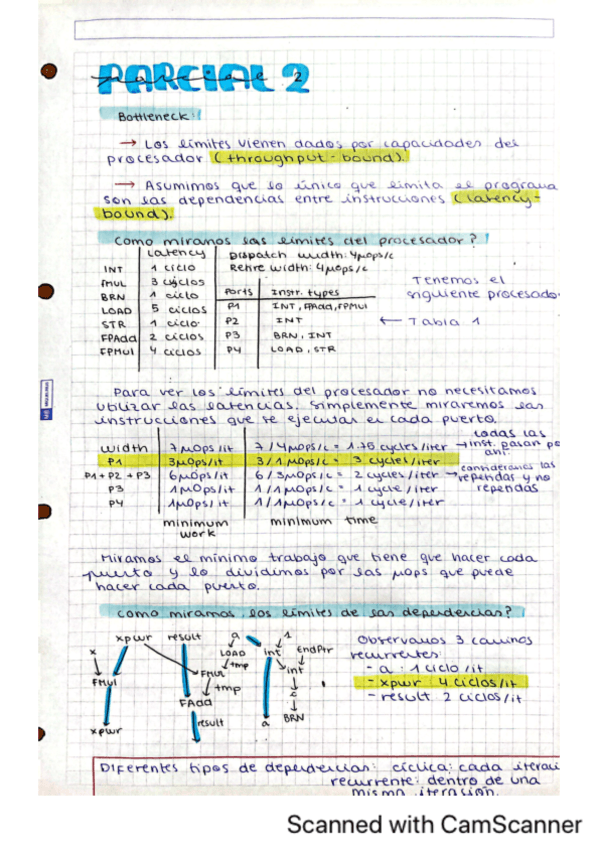 PARCIAL 2
parciale 2
Bottleneck:
→ Los límites vienen dados por capacidades del
procesador (throughput-bound).
→ Asumimos que lo único que limita el programa
son las dependencias entre instrucciones (latency-
bound).
Como miramos los límites del procesador?
Latency
INT 1 ciclo
FMUL 3 ciclos
BRN 1 ciclo
LOAD 5 ciclos
STR 1 ciclo
FPAdd 2 ciclos
FPMul 4 ciclos
Dispatch width: 4µops/c
Retire width: 4µops/c
Ports Instr. types
P1 INT, FAdd, FPMUl
P2 INT
P3 BRN, INT
P4 LOAD, STR
Tenemos el
siguiente procesado
← Tabla 1
Para ver los límites del procesador no necesitamos
utilizar las latencias. Simplemente miraremos las
instrucciones que se ejecutan el cada puerto.
width 7µops/it 7/4µops/c = 1.75 cycles/iter → todas las
inst. pasan po
ahí.
P1 3µops/it 3/1µops/c = 3 cycles/iter
P1+P2+P3 6µops/it 6/3µops/c = 2 cycles/iter → consideramos las
repetidas y no
repetidas
P3 1µops/it 1/1µops/c = 1 cycle/iter
P4 1µops/it 1/1µops/c = 1 cycle/iter
minimum
work
minimum time
Miramos el mínimo trabajo que tiene que hacer cada
puerto y lo dividimos por las µops que puede
hacer cada puerto.
Como miramos los límites de las dependencias?
xpwr result a 1
x LOAD Int EndPtr
FMul FMul tmp Int
tmp c
FAdd
xpwr result a BRN
Observamos 3 caminos
recurrentes:
- a : 1 ciclo/it
- xpwr 4 ciclos/it
- result 2 ciclos/it
Diferentes tipos de dependencias: cíclica: cada iteraci
recurrente: dentro de una
misma iteración.
Scanned with CamScanner